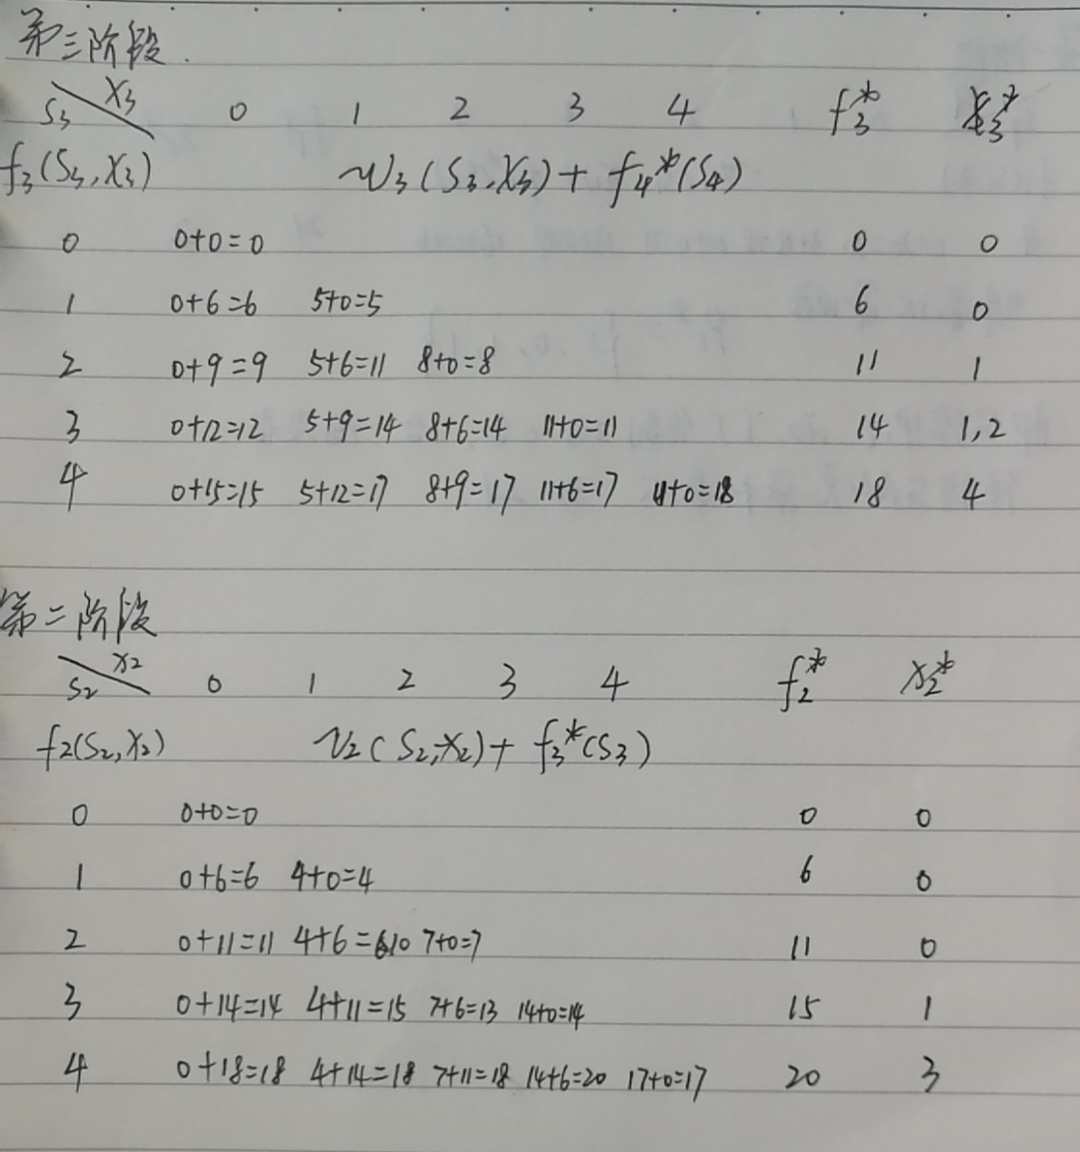 第三阶段
S3 X3 0 1 2 3 4 f3* X3*
f3(S3,X3) v3(S3,X3)+f4*(S4)
0 0+0=0 0 0
1 0+6=6 5+0=5 6 0
2 0+9=9 5+6=11 8+0=8 11 1
3 0+12=12 5+9=14 8+6=14 11+0=11 14 1,2
4 0+15=15 5+12=17 8+9=17 11+6=17 +0=18 18 4
第二阶段
S2 X2 0 1 2 3 4 f2* X2*
f2(S2,X2) v2(S2,X2)+f3*(S3)
0 0+0=0 0 0
1 0+6=6 4+0=4 6 0
2 0+11=11 4+6=10 7+0=7 11 0
3 0+14=14 4+11=15 7+6=13 14+0=14 15 1
4 0+18=18 4+14=18 7+11=18 14+6=20 17+0=17 20 3